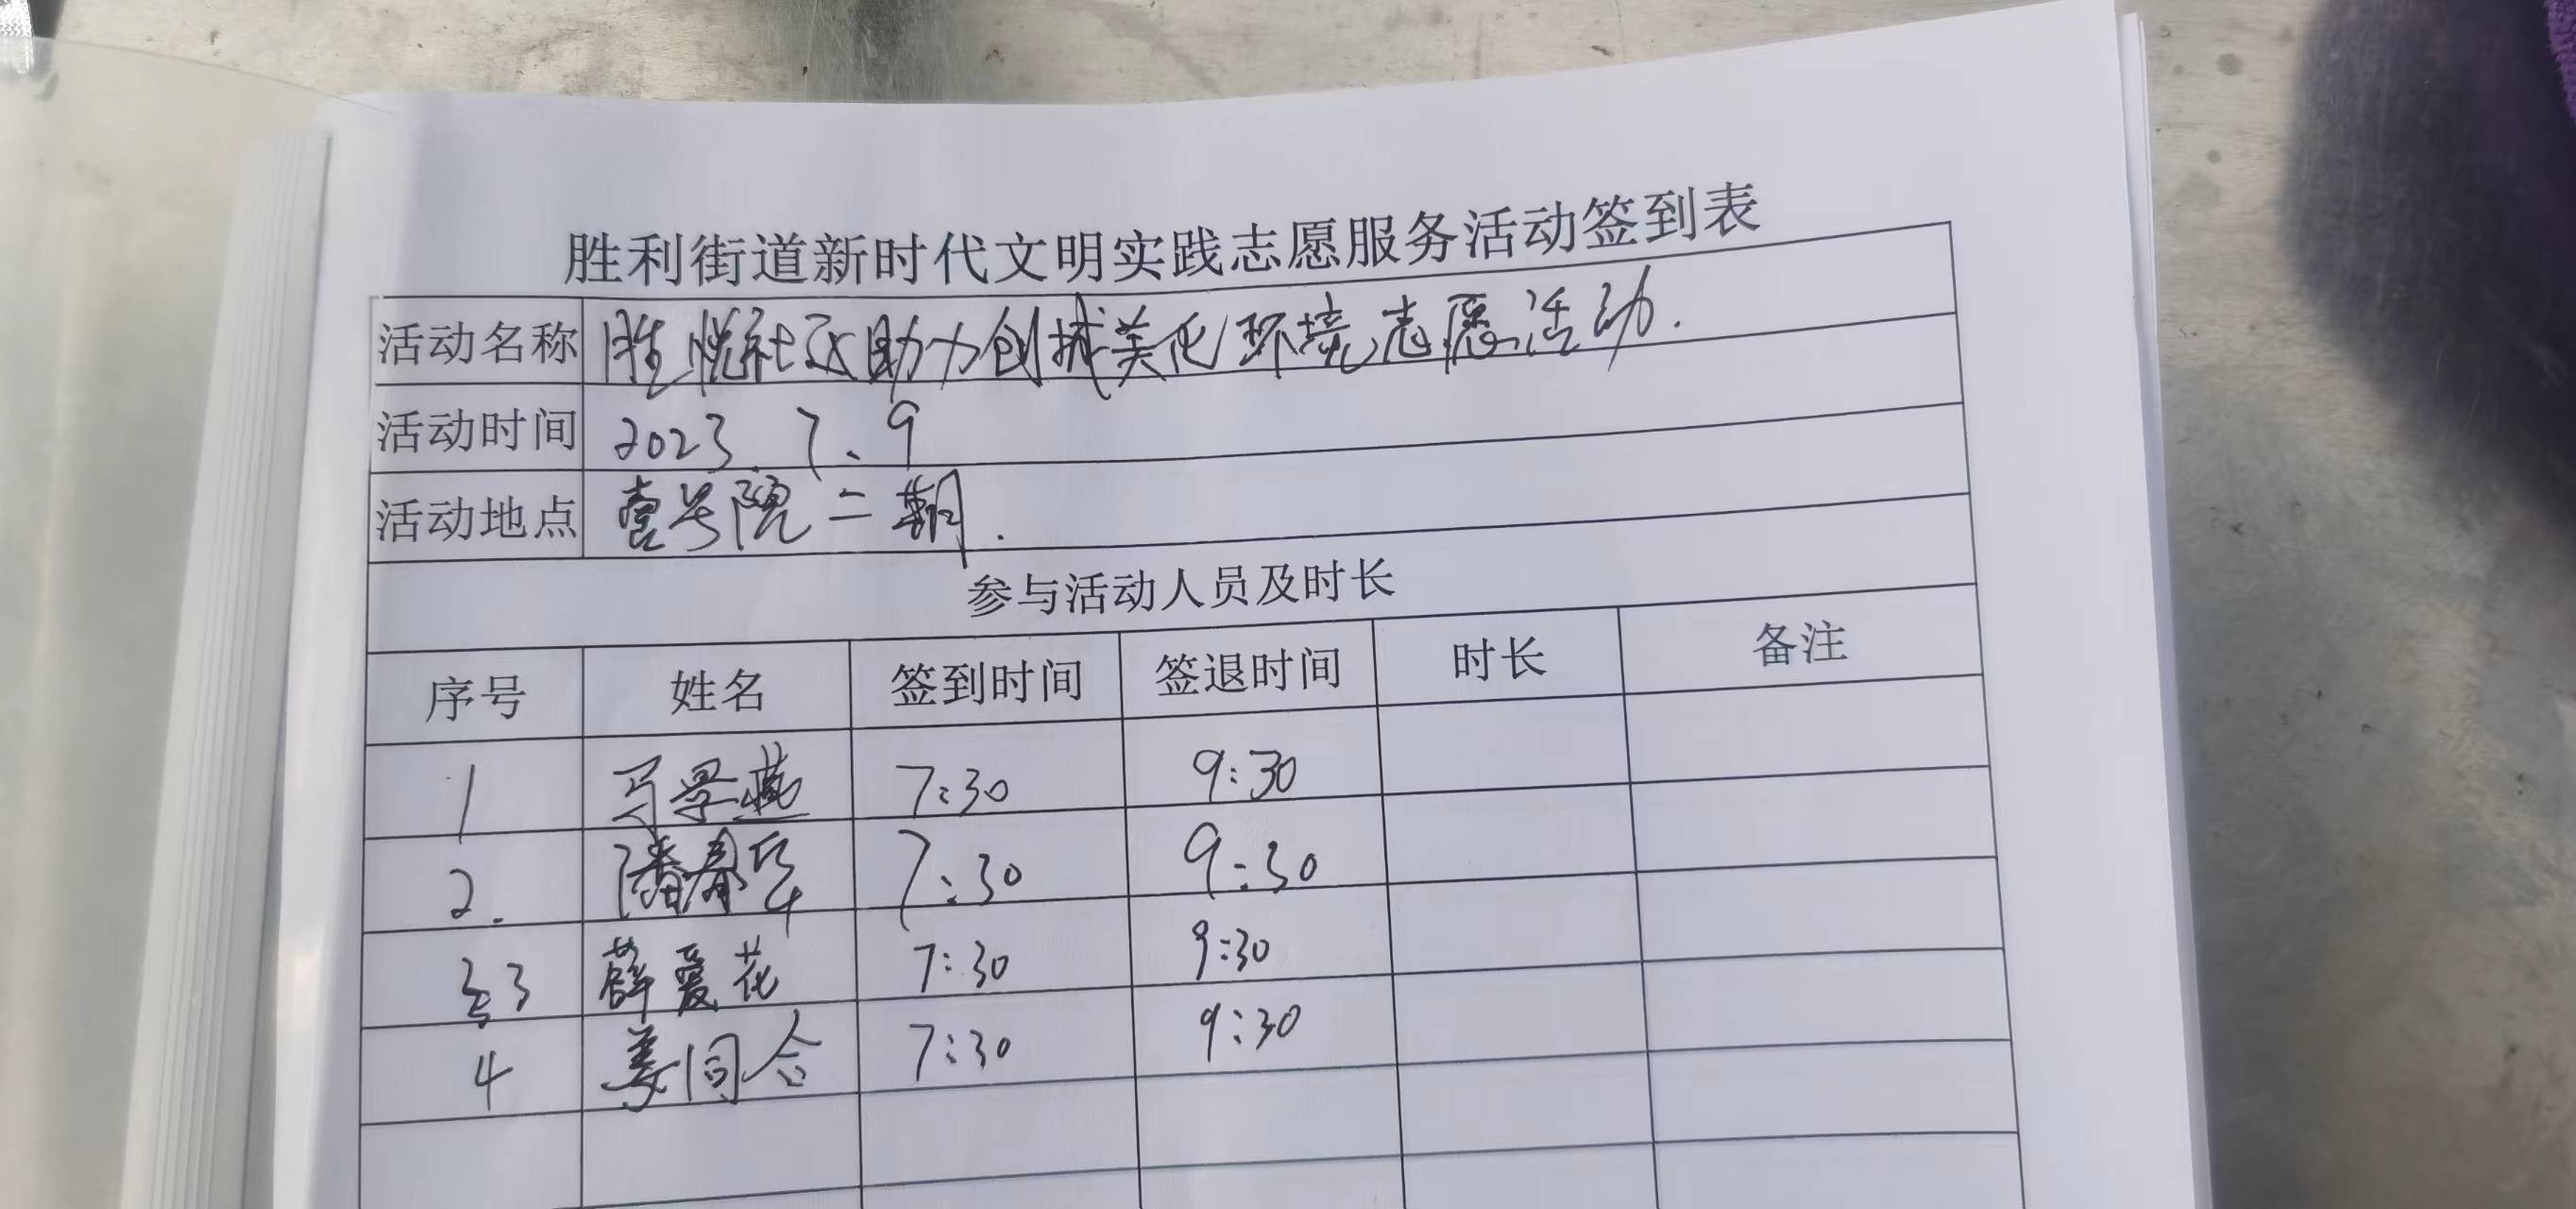 胜利街道新时代文明实践志愿服务活动签到表
活动名称 胜悦社区助力创城美化环境志愿活动.
活动时间 2023.7.9
活动地点 壹号院二期.
参与活动人员及时长
序号 姓名 签到时间 签退时间 时长 备注
1 马学燕 7:30 9:30
2. 潘春华 7:30 9:30
3 薛爱花 7:30 9:30
4 姜同合 7:30 9:30